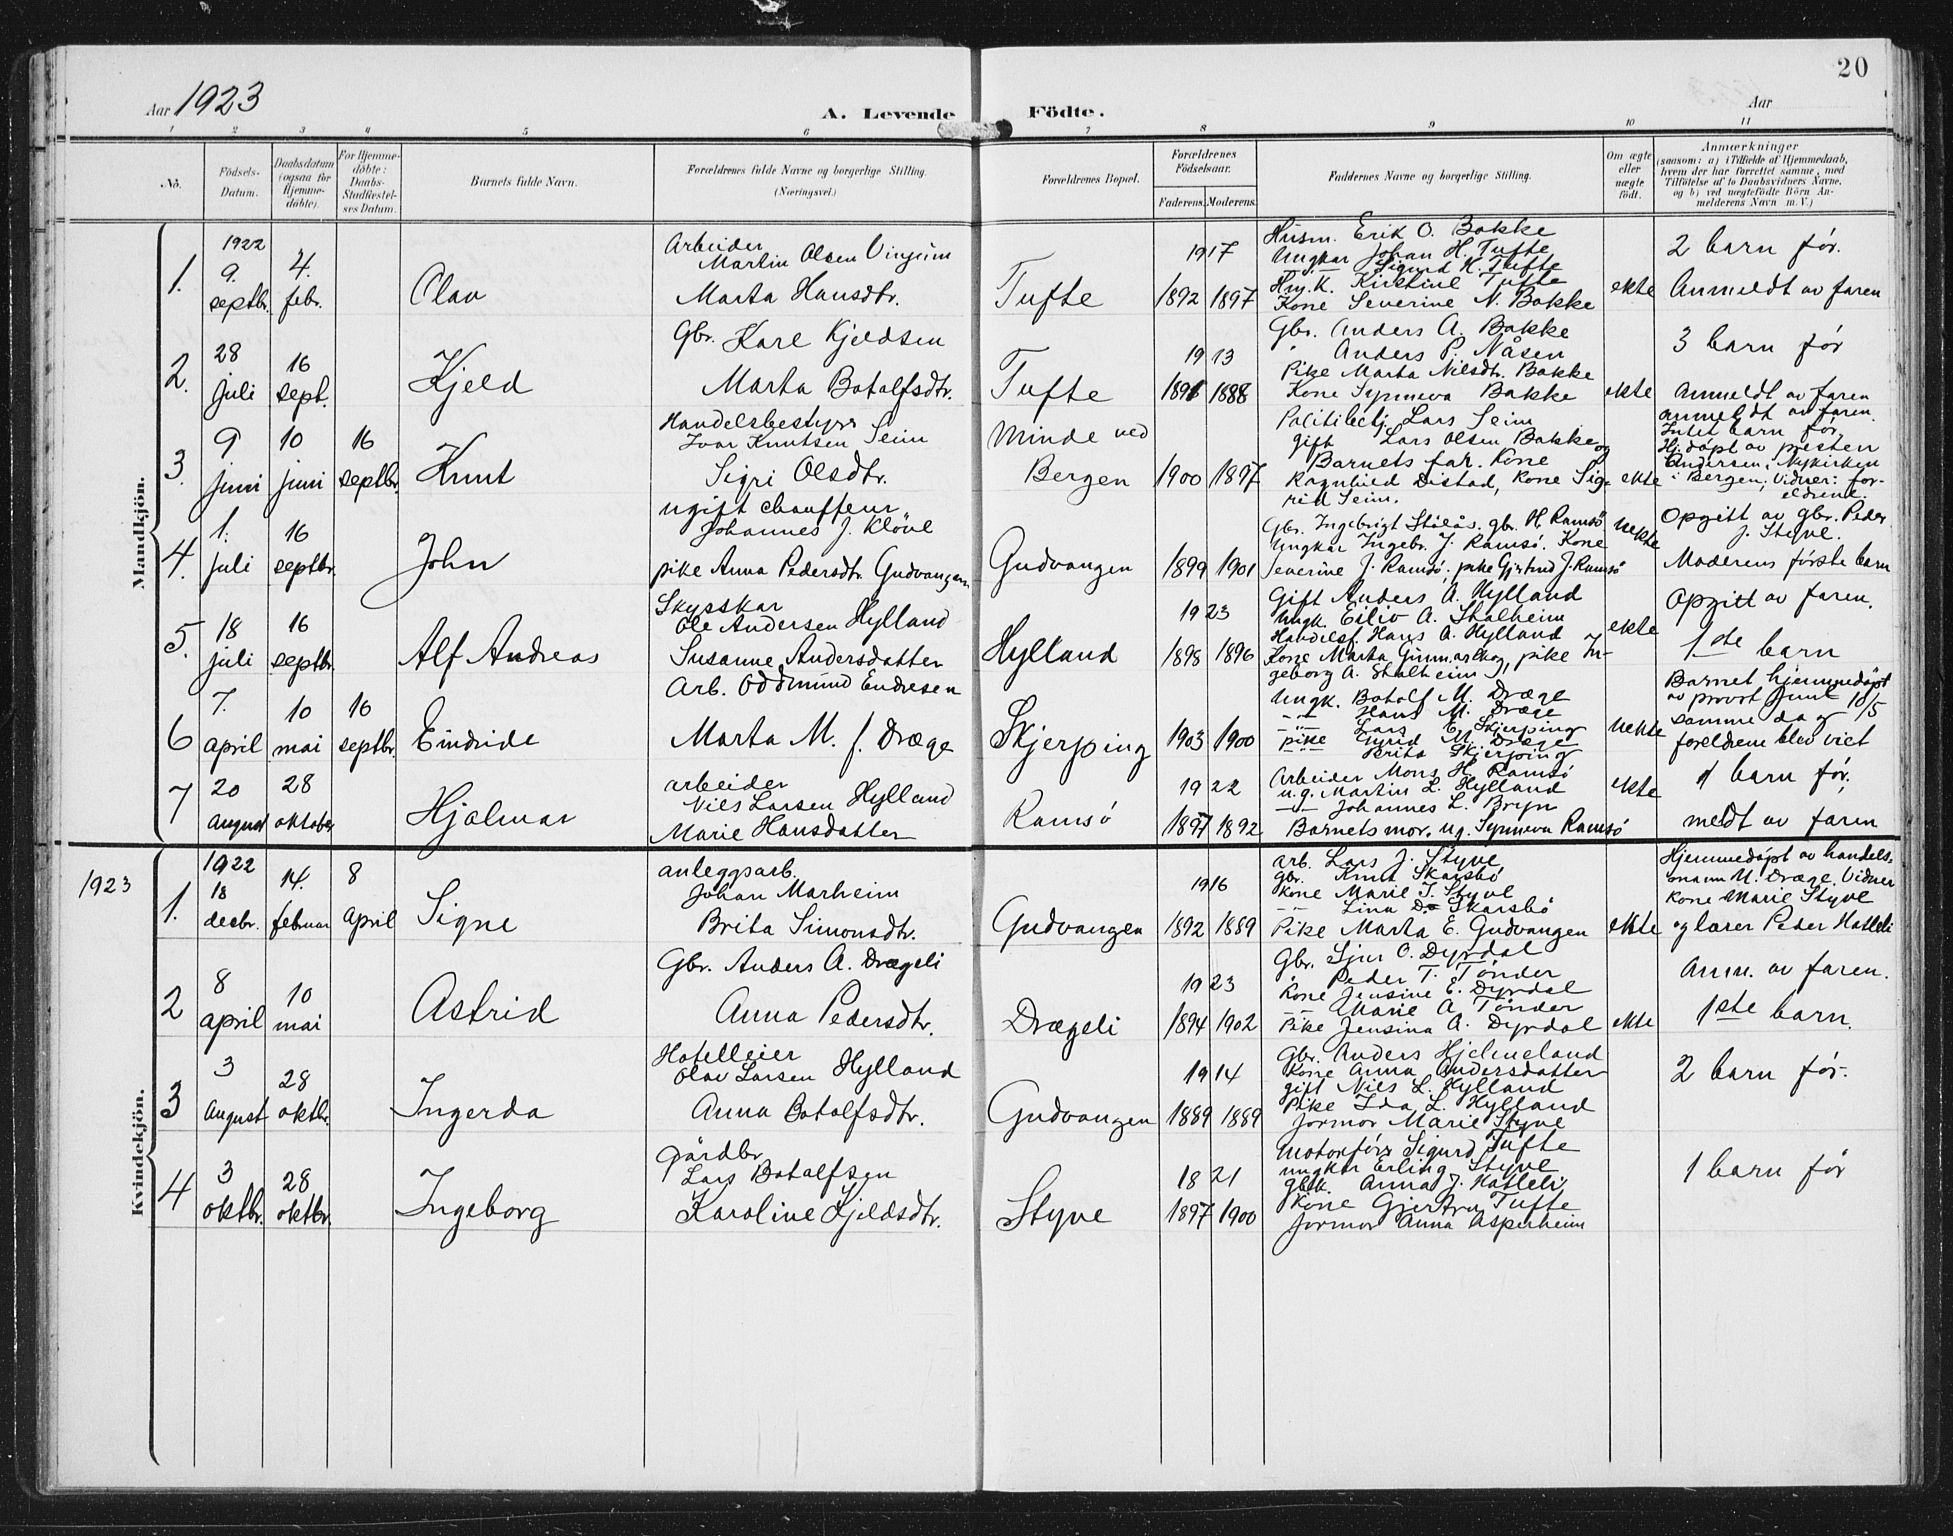 20
Aar 1923
A. Levende Födte.
Aar
1 2 3 4 5 6 7 8 9 10 11
No.
Födsels-Datum.
Daabsdatum (ogsaa for Hjemme-döbte).
For Hjemme-döbte: Daabs-Stadfæstel-ses Datum.
Barnets fulde Navn.
Forældrenes fulde Navne og borgerlige Stilling. (Næringsvei.)
Forældrenes Bopæl.
Forældrenes Födselsaar.
Faderens. Moderens.
Faddernes Navne og borgerlige Stilling.
Om ægte eller uægte födt.
Anmærkninger
(saasom: a) i Tilfælde af Hjemmedaab,
hvem der har forrettet samme, med
Tilföielse af to Daabsvidners Navne,
og b) ved uægtefödte Börn An-
melderens Navn m. V.)
Mandkjön.
1.
1922
9. septbr.
4. febr.
Olav
Arbeider
Martin Olsen Vinjum
Marta Hansdtr.
Tufte
1917
1892 1897
Husm. Erik O. Bakke
Ungkar Johan H. Tufte
—"— Sigurd H. Tufte
Kirstine Tufte
Kone Severine N. Bakke
ekte
2 barn før.
Anmeldt av faren
2.
28 juli
16 sept.
Kjeld
Gbr. Karl Kjeldsen
Marta Botolfsdtr.
Tufte
1913
1891 1888
Gbr. Anders A. Bakke
" Anders P. Nåsen
Pike Marta Nilsdtr. Bakke
Kone Synneva Bakke
ekte
3 barn før
Anmeldt av faren
3.
9 juni
10 juni
16 septbr.
Knut
Handelsbestyrer
Ivar Knutsen Seim
Sigri Olsdtr.
Minde ved
Bergen
1900 1897
Politibetj. Lars Seim
gift Lars Olsen Bakke og
Barnets far. Kone
Ragnhild Distad, Kone Sig-
rid Seim.
ekte
anmeldt av faren.
Intet barn før.
Hj.døpt av presten
Andersen i Nykirken
i Bergen; Vidner: for-
eldrene.
4.
1. juli
16 septbr.
John
ugift chauffeur
Johannes J. Kløve
pike Anna Pedersdtr. Gudvangen
Gudvangen
1899 1901
Gbr. Ingebrigt Stålås. gbr. H. Ramsø
Ungkar Ingebr. J. Ramsø. Kone
Severine J. Ramsø, pike Gjertrud J. Ramsø
uekte
Opgitt av gbr. Peder
J. Styve.
Moderens første barn
5.
18 juli
16 septbr.
Alf Andreas
Skysskar
Ole Andersen Hylland
Susanne Andersdatter
Hylland
1923
1898 1896
Gift Anders A. Hylland
Ungk. Eiliv A. Stalheim
Handelsf. Hans A. Hylland
Kone Marta Gunnarskog, pike In-
geborg A. Stalheim
ekte
Opgitt av faren.
1ste barn
6
7. april
10 mai
16 septbr.
Eindride
Arb. Oddmund Endresen
Marta M. f. Dræge
Skjerping
1903 1900
Ungk. Botolf M. Dræge
—"— Hans M. Dræge
—"— Lars E. Skjerping
pike Gurid M. Dræge
Brita Skjerping
uekte
Barnet hjemmedøpt
av provst Junt 10/5
samme dag
foreldrene blev viet
7
20 august
28 oktober
Hjalmar
arbeider
Nils Larsen Hylland
Marie Hansdatter
Ramsø
1922
1897 1892
Arbeider Mons H. Ramsø
u.g. Martin L. Hylland
—"— Johannes L. Bryn
Barnets mor. ug. Synneva Ramsø
ekte
1 barn før,
meldt av faren
1923
Kvindekjön.
1.
1922
18 desbr.
14. februar
8 april
Signe
anleggsarb.
Johan Marheim
Brita Simonsdtr.
Gudvangen
1916
1892 1889
arb. Lars J. Styve
gbr. Knut Skarsbø
Kone Marie J. Styve
—"— Lina D. Skarsbø
Pike Marta E. Gudvangen
ekte
Hjemmedøpt av handels-
mann M. Dræge. Vidner
Kone Marie Styve
og lærer Peder Hatleli
2
8 april
10 mai
Astrid
Gbr. Anders A. Drægeli
Anna Pedersdtr.
Drægeli
1923
1894 1902
Gbr. Sjur O. Dyrdal
" Peder T. Tønder
Kone Jensine E. Dyrdal
—"— Marie A Tønder
Pike Jensina A. Dyrdal
ekte
Anm. av faren.
1ste barn.
3
3 august
28 oktbr.
Ingerda
Hotelleier
Olav Larsen Hylland
Anna Botolfsdtr.
Gudvangen
1914
1889 1889
Gbr. Anders Hjelmeland
Kone Anna Andersdatter
gift Nils L. Hylland
Pike Ida L. Hylland
Jormor Marie Styve
2 barn før.
4
3 oktbr.
28 oktbr.
Ingeborg
gårdbr.
Lars Botolfsen
Karoline Kjeldsdtr.
Styve
1821
1897 1900
Motorfører Sigurd Tufte
ungkar Erling Styve
Anna J. Hatleli
Kone Gjertru Tufte
Jormor Anna Asperheim
1 barn før